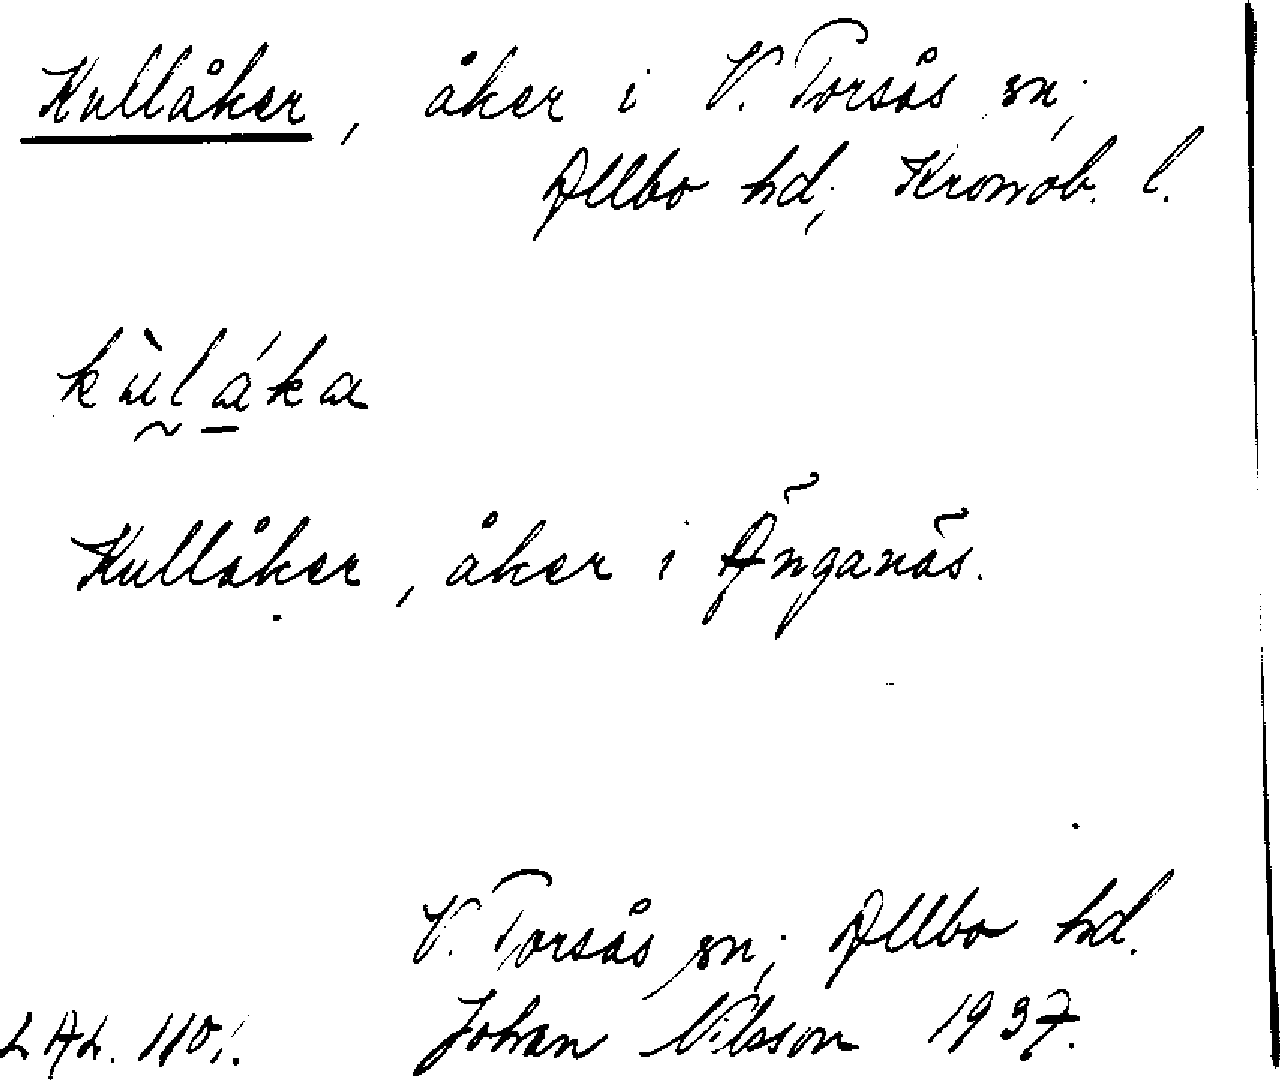 Kullåker, åker i V. Torsås sn;
Allbo hd; Kronob. l.
kùláka
Kullåker, åker i Änganäs.
V. Torsås sn; Allbo hd.
Johan Nilsson 1937.